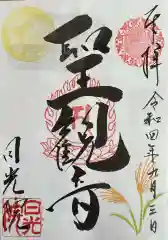 奉拝
令和四年九月三日
聖観音
月光院